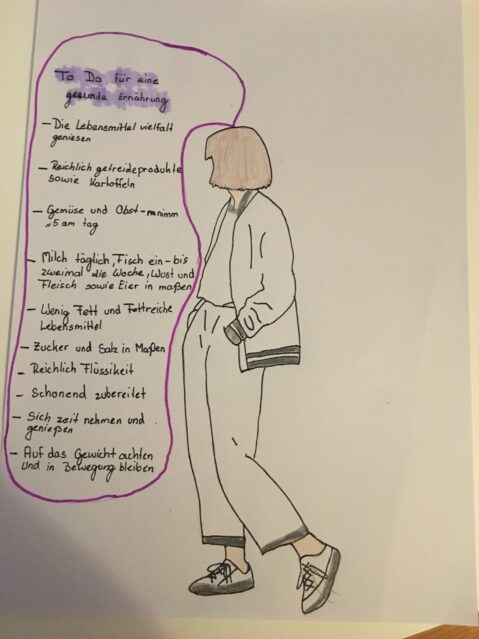 To Do für eine
gesunde Ernährung
- Die Lebensmittel vielfalt
geniesen
- Reichlich getreideprodukte
sowie Kartoffeln
- Gemüse und Obst - nimm
"5 am tag
- Milch täglich, Fisch ein - bis
zweimal die Woche, Wust und
Fleisch sowie Eier in maßen
- Wenig Fett und Fettreiche
Lebensmittel
- Zucker und Salz in Maßen
- Reichlich Flüssikeit
- Schonend zubereitet
- Sich zeit nehmen und
genießen
- Auf das Gewicht achten
und in Bewegung bleiben